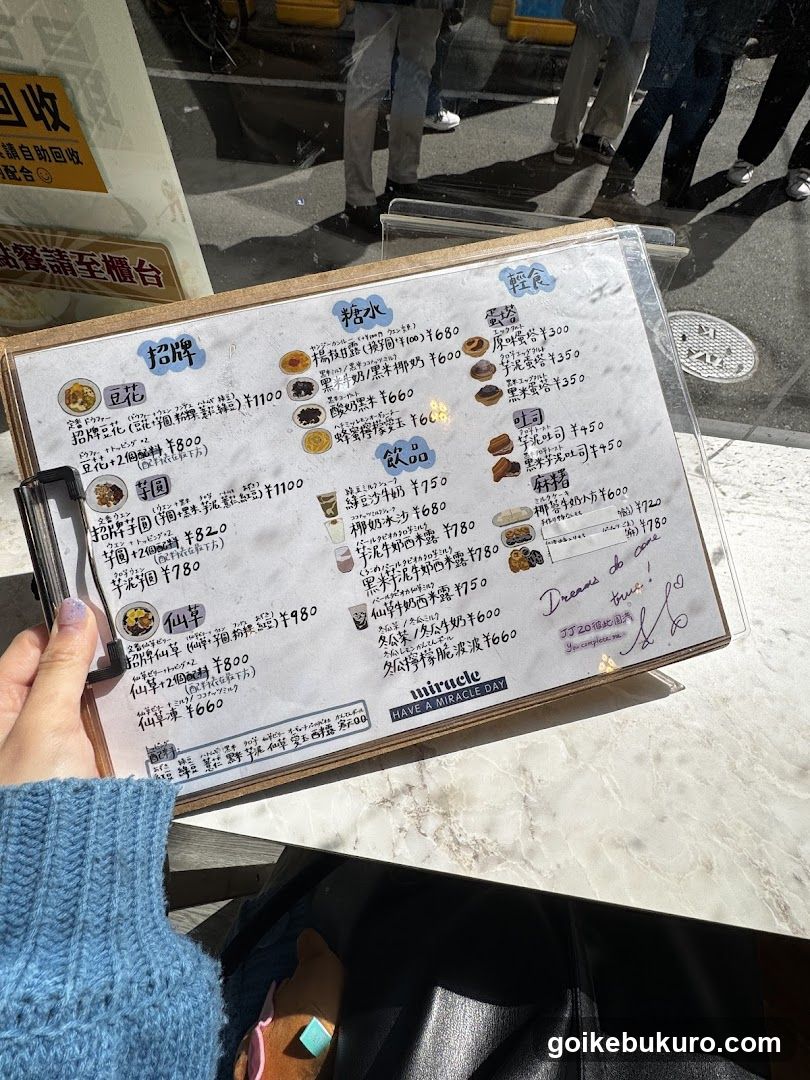 回收
請自助回收
配合
點餐請至櫃台
招牌
豆花
招牌豆花(豆花+芋圓+粉粿+薏仁+綠豆)¥1100
豆花+2個配料 ¥800
(配料在最下方)
芋圓
招牌芋圓(芋圓+黑米+芋泥+薏仁+紅豆)¥1100
芋圓+2個配料 ¥820
(配料在最下方)
芋泥芋圓 ¥780
仙草
招牌仙草(仙草+芋圓+粉粿+紅豆)¥980
仙草+2個配料 ¥800
(配料在最下方)
仙草凍 ¥660
配料
紅豆 綠豆 薏仁 黑米 芋泥 仙草 愛玉 西米露 寒天
糖水
楊枝甘露(換芋圓+¥100)¥680
黑米牛奶/黑米椰奶 ¥600
酸奶黑米 ¥660
蜂蜜檸檬愛玉
飲品
綠豆沙牛奶 ¥750
椰奶冰沙 ¥680
芋泥牛奶西米露 ¥780
黑米芋泥牛奶西米露 ¥780
仙草牛奶西米露 ¥750
冬瓜茶/冬瓜牛奶 ¥600
冬瓜檸檬脆波波 ¥660
miracle
HAVE A MIRACLE DAY
輕食
蛋塔
エッグタルト
原味蛋塔 ¥300
芋泥蛋塔 ¥350
黑米蛋塔 ¥350
吐司
芋泥吐司 ¥450
黑米芋泥吐司 ¥450
麻糬
ミルクケーキ
椰蓉牛奶小方 ¥600
¥720
¥780
Dreams do come
true!
JJ20
You complete me
goikebukuro.com